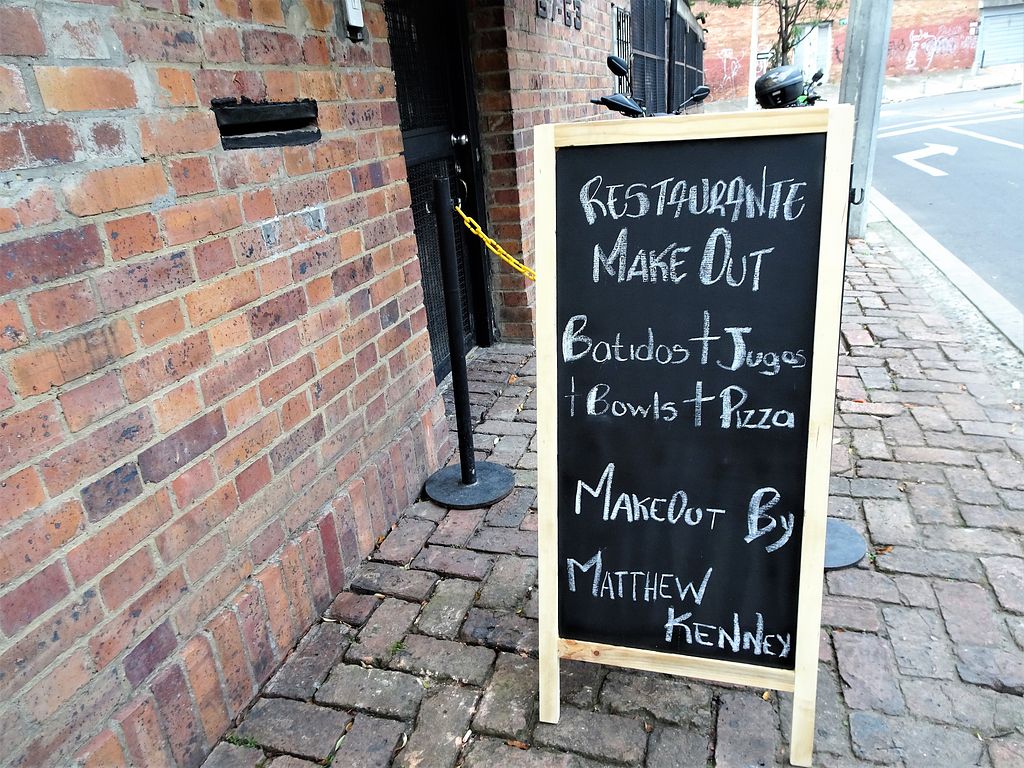 RESTAURANTE
MAKE OUT
Batidos + Jugos
+ Bowls + Pizza
MAKEOUT By
MATTHEW
KENNEY